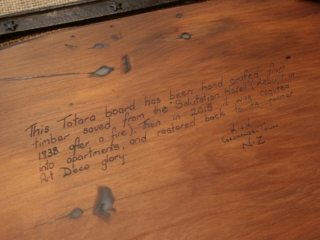 This Totara board has been hand crafted from
timber saved from the Salutation Hotel
1938 after a fire). Then in 2018 it was
into apartments, and restored back to its former
Art Deco glory.
N.Z